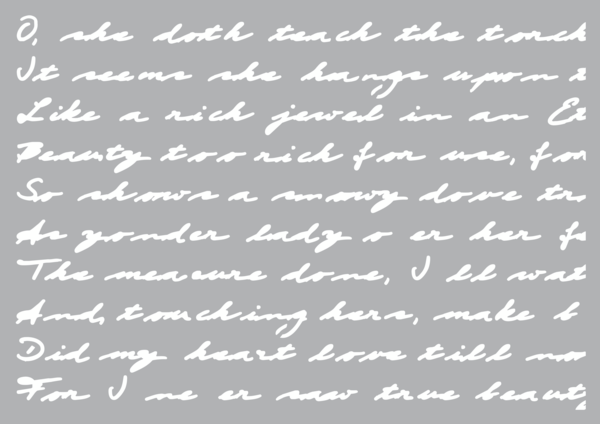 O, she doth teach the torch
It seems she hangs upon
Like a rich jewel in an
Beauty too rich for use, for
So shows a snowy dove
As yonder lady o er her
The measure done, I ll wat
And, touching hers, make b
Did my heart love till now
For I ne er saw true beauty